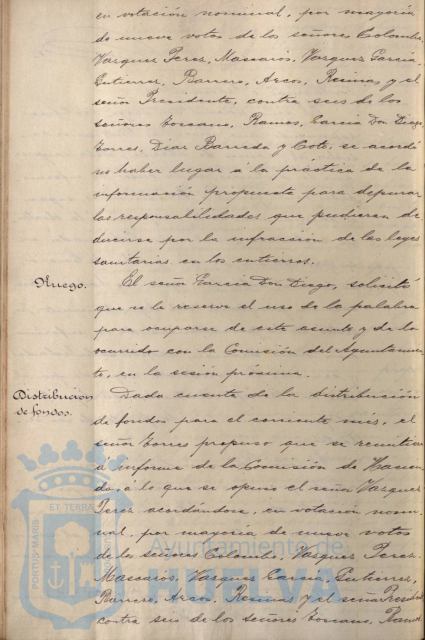 en votación nominal, por mayoría
de nueve votos de los señores Colombo,
Vazquez Perez, Mascarós, Vazquez García,
Gutierrez, Barrero, Arcos, Reinas, y el
señor Presidente, contra seis de los
señores Toscano, Ramos, García Don Diego,
Torres, Diaz Barreda y Coto, se acordó
no haber lugar á la práctica de la
información propuesta para depurar
las responsabilidades que pudieran de
ducirse por la infracción de las leyes
sanitarias en los entierros.
Ruego.
El señor García Don Diego, solicitó
que se le reserve el uso de la palabra
para ocuparse de este asunto y de lo
ocurrido con la Comisión del Ayuntamien
to, en la sesión próxima.
Distribución
de fondos.
Dada cuenta de la distribución
de fondos para el corriente mes, el
señor Torres propuso que se remitiera
a informe de la Comisión de Hacien
da, á lo que se opuso el señor Vazquez
Perez acordándose, en votación nomi
nal, por mayoría de nueve votos
de los señores Colombo, Vazquez Perez,
Mascarós, Vazquez García, Gutierrez,
Barrero, Arcos, Reinas y el señor Presidente
contra seis de los señores Toscano, Ramos
PORTUS MARIS ET TERRAE
Ayuntamiento de
HUELVA